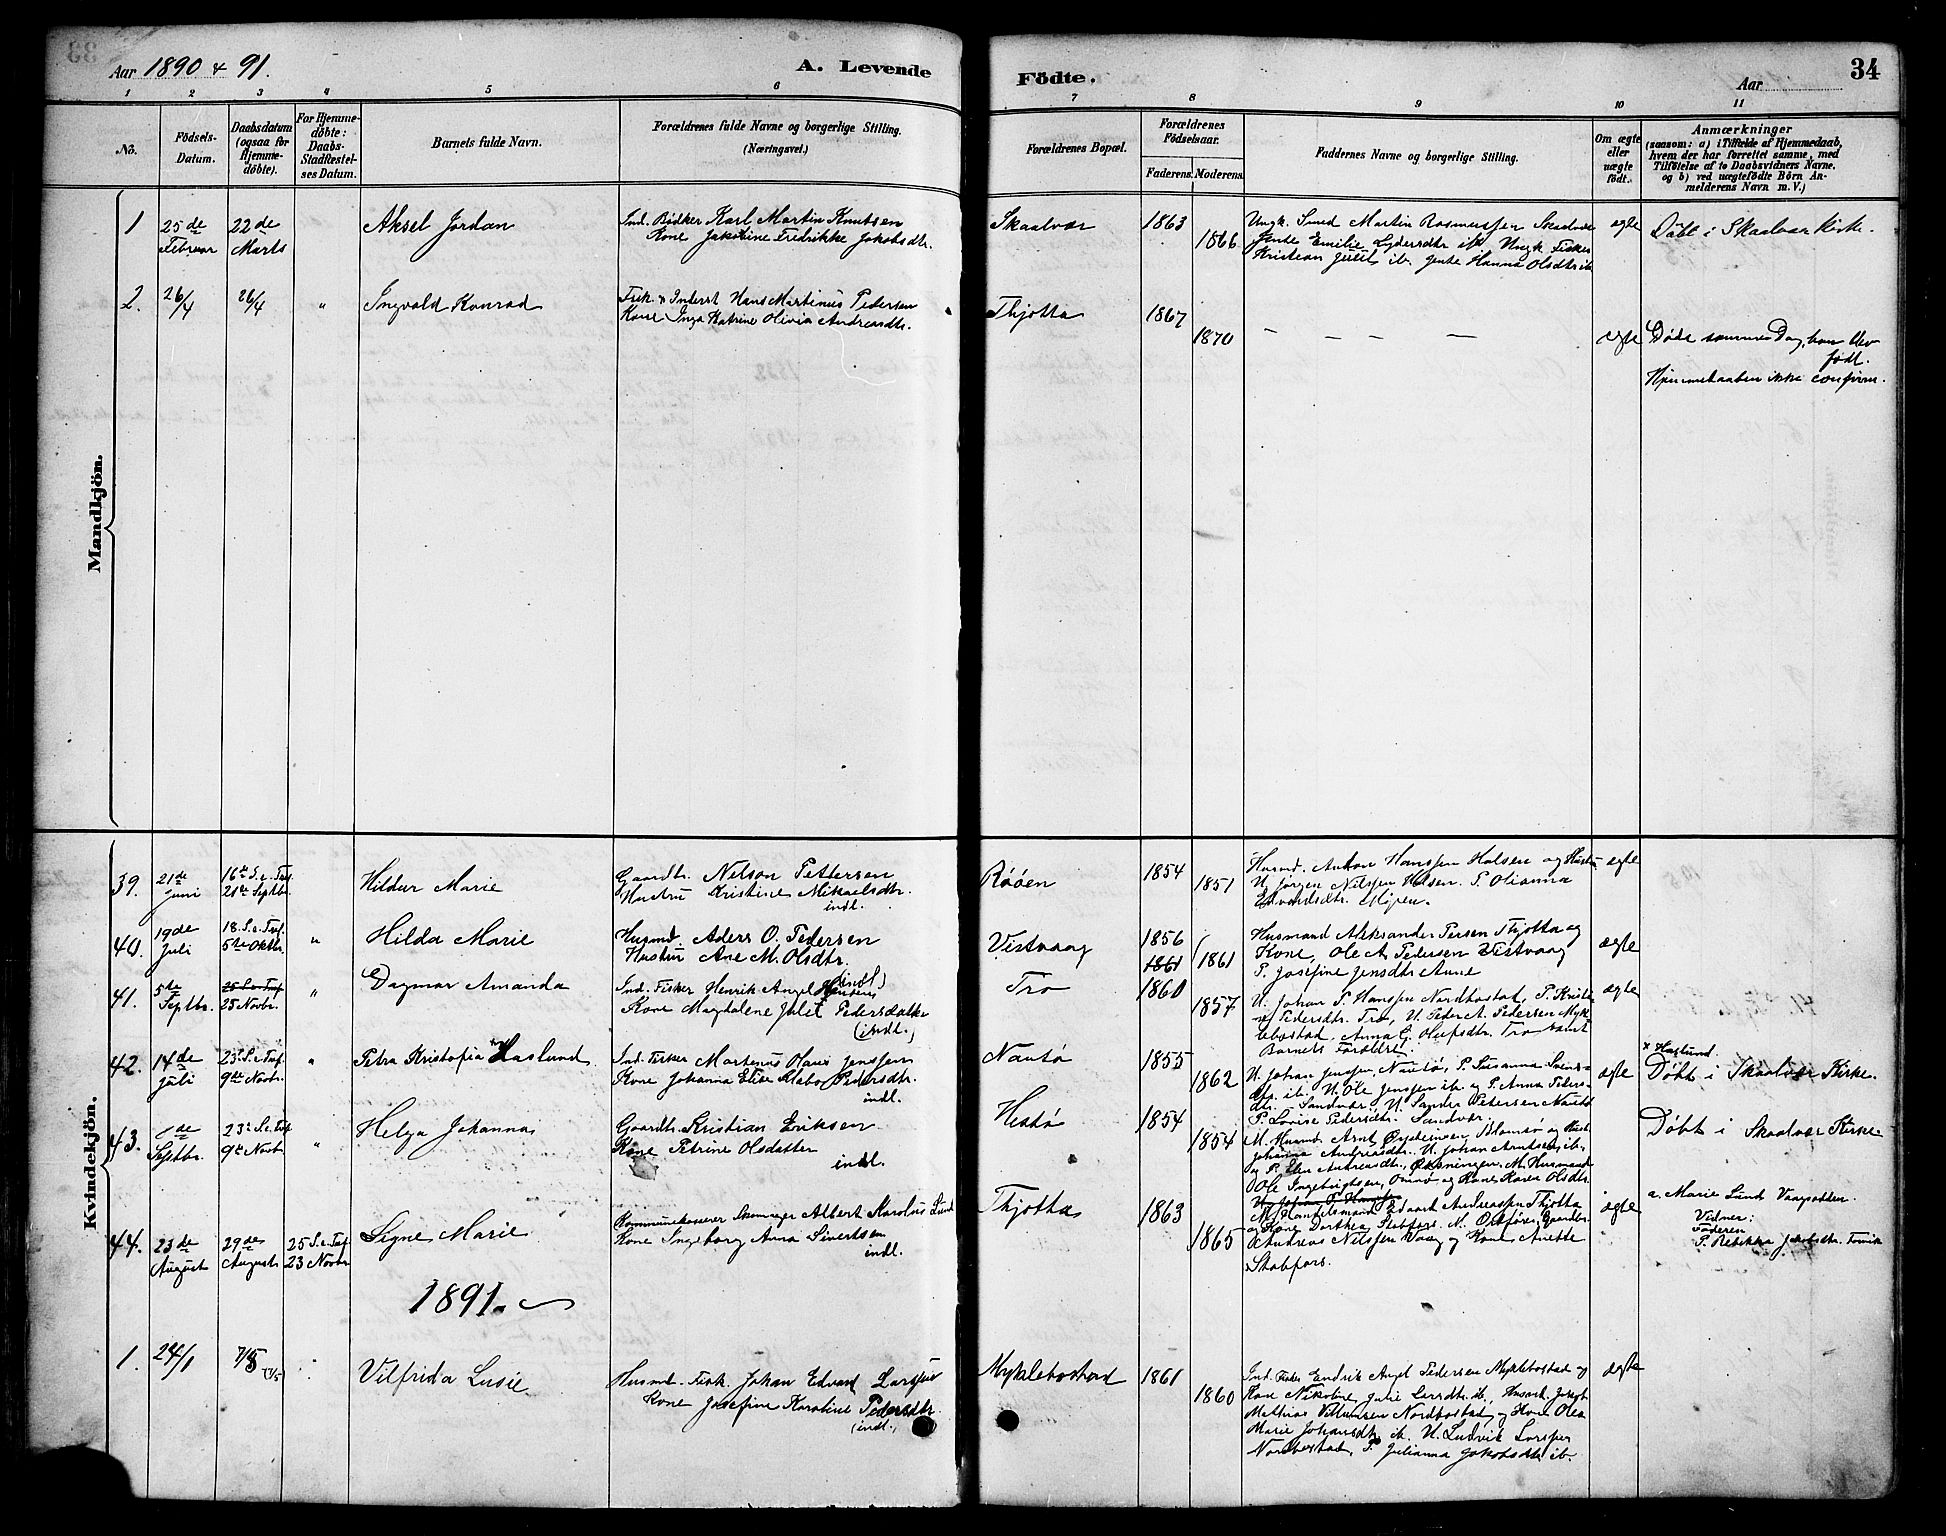 Aar 1890 & 91.
A. Levende
Födte.
Aar
34
1 2 3 4 5 6 7 8 9 10 11
No.
Födsels-Datum.
Daabsdatum (ogsaa for Hjemmedöbte).
For Hjemmedöbte: Daabs-Stadfæstelses Datum.
Barnets fulde Navn.
Forældrenes fulde Navne og borgerlige Stilling.
(Næringsvei.)
Forældrenes Bopæl.
Forældrenes Födselsaar.
Faderens.
Moderens.
Faddernes Navne og borgerlige Stilling.
Om ægte eller uægte født.
Anmærkninger
(saasom: a) i Tilfælde af Hjemmedaab, hvem der har forrettet samme, med Tilföielse af to Daabsvidners Navne, og b) ved uægtefödte Börn Anmelderens Navn m. V.)
Mandkjön.
1
25de Februar
22de Marts
Aksel Jordan
Ind. Bødker Karl Martin Knutsen
Kone Jakobine Fredrikke Jakobsdtr.
Skaalvær
1863
1866
Ungk. Smed Martin Rasmussen Skaalvær
Jente Emilie Lydersdtr ib. Ungk. Fisker
Kristian Juul ib. Jente Hanna Olsdtr ib.
ægte
Døbt i Skaalvær Kirke.
2.
26/4
26/4
"
Ingvald Konrad
Fisk. & Inderst Hans Martinus Pedersen
Kone Inga Katrine Olivia Andreasdtr.
Thjøtta
1867
1870
— — — —
ægte
Døde samme Dag, han blev
født.
Hjemmedaaben ikke confirm.
Kvindekjön.
39.
21de Juni
16de S. e. Tref.
21de Septbr.
Hildur Marie
Gaardbr. Nelson Pettersen
Hustru Kristine Mikaelsdtr.
indl.
Røøen
1854
1851
Husmd. Anton Hanssen Halsen og Hustru
U. Jørgen Nilssen Halsen. P. Olianna
Edvardsdtr.
ægte
40.
19de Juli
18. S. e. Tref.
5te Oktbr.
"
Hilda Marie
Husmd. Aders O. Pedersen
Hustru Ane M. Olsdtr.
(indl.)
Vistvaag
1856
1861
1861
Husmand Aleksander Persen Thjøtta og
Kone, Ole A. Pedersen Vistvaag
P. Josefine Jensdtr. Aune
ægte
41.
5te Septbr.
25 S. e. Tref.
25 Novbr.
"
Dagmar Amanda
Ind. Fisker Henrik Angel Hansen
Kone Magdalene Julie Pedersdatter
(indl.)
Tro
1860
1857
U. Johan P. Hanssen Nordbostad, P. Kristine
Pedersdtr. Tro, U. Peder A. Pedersen Myklebostad,
Anna G. Olufsdtr. Tro samt
Barnets Forældre
ægte
42.
14de Juli
23de S. e. Tref.
9de Novbr.
"
Petra Kristofia x Haslund
Ind. Fisker Martenus Olaus Jenssen
Kone Johanna Elise Pedersdtr.
indl.
Nautø
1855
1862
U. Johan Jenssen, Nautø, P. Susanna Svendsdtr.
ib. U. Ole Jenssen ib. og P. Anna Pedersdtr.
Sandvær. U. Sander Petersen Nautø
P. Lovise Pedersdtr. Sandvær.
ægte
x Haslund.
Døbt i Skaalvær Kirke.
43.
Septbr.
23de S. e. Tref.
9de Novbr.
"
Helga Johanna
Gaardbr. Kristian Eriksen
Kone Petrine Olsdatter
indl.
Hestø
1854
1854
M. Husmd. Arnt Blomsø og Hust.
Johanna Andreasdtr. U. Johan Arntsen ib.
og P. Elen Andreasdtr., M. Husmand
Ole Ingebrigtsen, Omnø og Kone Karen Olsdtr.
Døbt i Skaalvær Kirke
44.
23de August
29de August
25 S. e. Tref.
23 Novbr.
Signe Marie
Kommunekasserer Skomager Albert Karolius Lund
Kone Ingeborg Anna Sivertsen
indl.
Thjøtta
1863
1865
M. Handelsmand Edvart Andreassen Thjøtta
og Kone Dorthea, Stabfors. M. Gaardbr.
Andreas Nilssen Vaag og Kone Anette
Stabfors.
ægte
a. Marie Lund Vaagsodden.
Vidner:
Faderen
P. Rebekka Jakobsdtr.
1891.
1.
24/1
7/5
Vilfrida Lusie
Husmd. Fisk. Johan Edvard Larssen
Kone Josefine Karoline Pedersdtr.
(indl.)
Myklebostad
1861
1860
Ind. Fisker Endrik Angel Pedersen Myklebostad og
Kone Nikoline Julie Larsdtr. ib.,
Mathias Villumsen Nordbostad og Kone Olea
Marie Johansdtr. ib. U. Ludvik Larssen
Nordbostad, P. Julianna Jakobsdtr. ib.
ægte